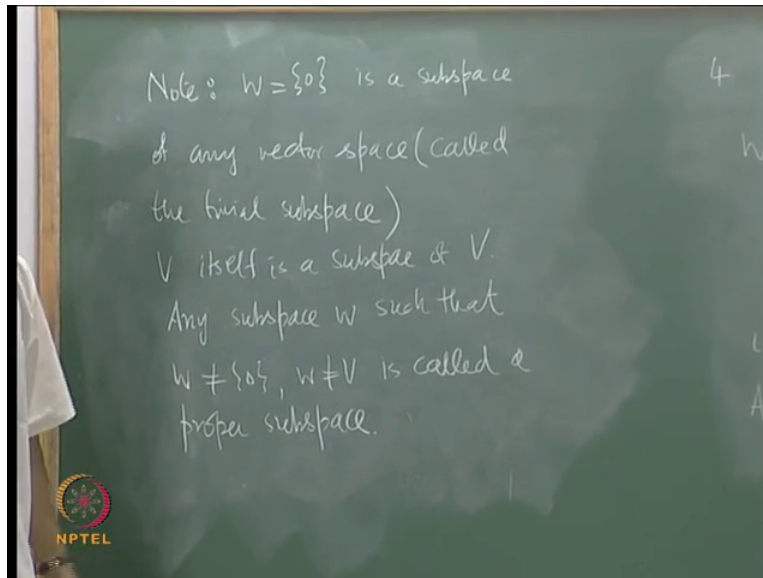 Note: W = {0} is a subspace
of any vector space (called
the trivial subspace)
V itself is a subspae of V.
Any subspace W such that
W ≠ {0}, W ≠ V is called a
proper subspace.
4
NPTEL